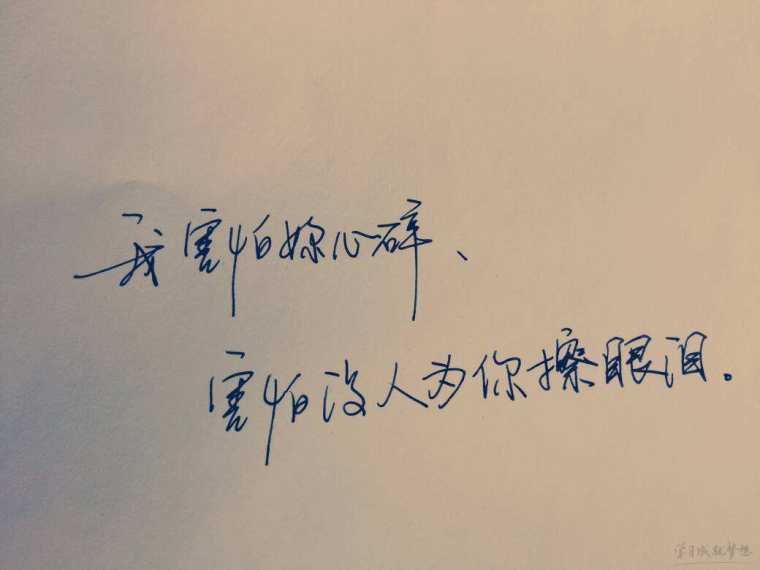 我害怕妳心碎、
害怕没人为你擦眼泪。
学习成就梦想